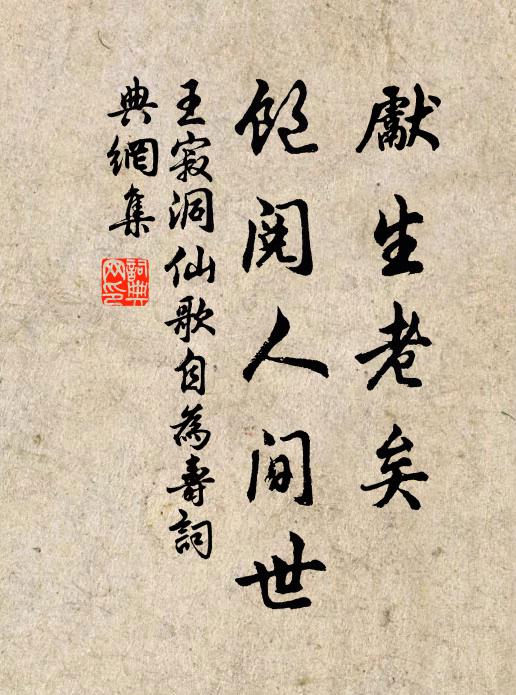 獻生老矣
飽閱人間世
王寂洞仙歌自為壽詞
典網集
詞典網印